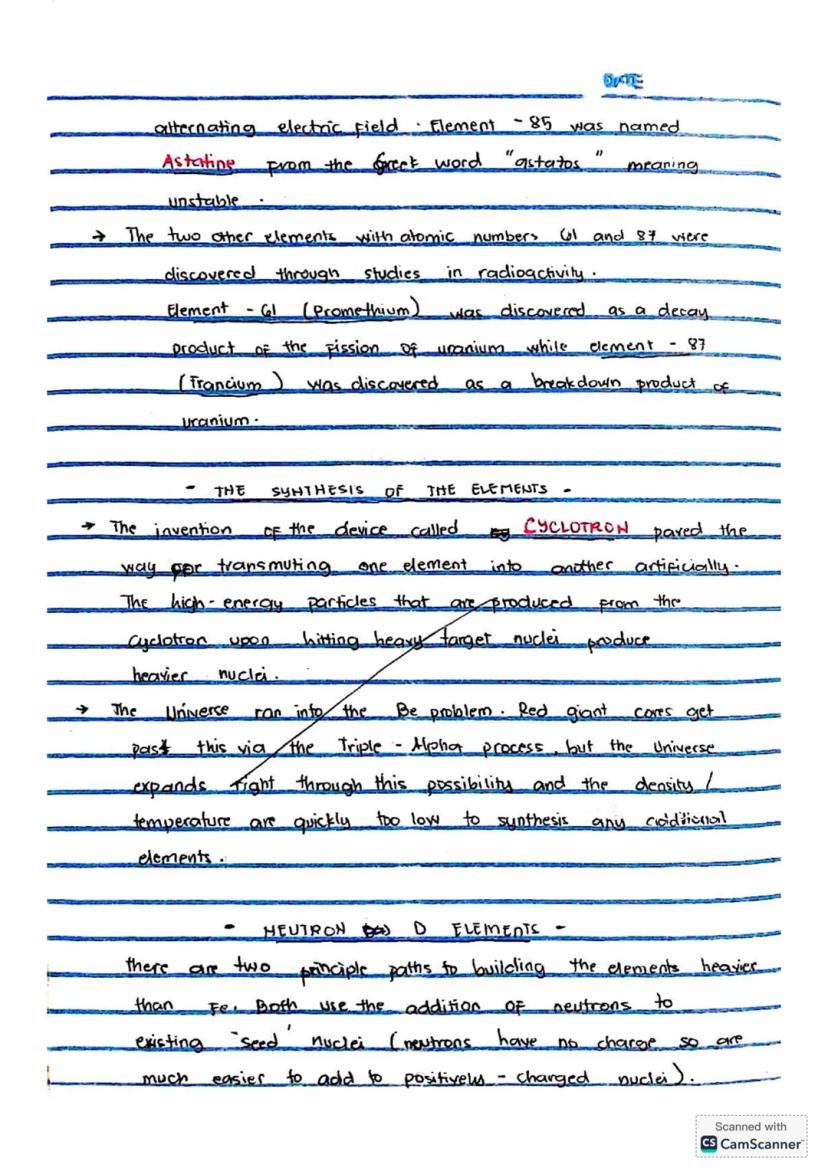 DATE
alternating electric field. Element - 85 was named
Astatine from the Greek word "astatos" meaning
unstable.
→ The two other elements with atomic numbers 61 and 87 were
discovered through studies in radioactivity.
Element - 61 (Promethium) was discovered as a decay
product of the fission of uranium while element - 87
(Francium) was discovered as a breakdown product of
uranium.
- THE SYNTHESIS OF THE ELEMENTS -
→ The invention of the device called CYCLOTRON paved the
way for transmuting one element into another artificially.
The high-energy particles that are produced from the
cyclotron upon hitting heavy target nuclei produce
heavier nuclei.
→ The Universe ran into the Be problem. Red giant cores get
past this via the Triple - Alpha process, but the Universe
expands right through this possibility and the density /
temperature are quickly too low to synthesis any additional
elements.
- NEUTRON D ELEMENTS -
there are two principle paths to building the elements heavier
than Fe. Both use the addition of neutrons to
existing 'seed' nuclei (neutrons have no charge so are
much easier to add to positively - charged nuclei).
Scanned with
CS CamScanner